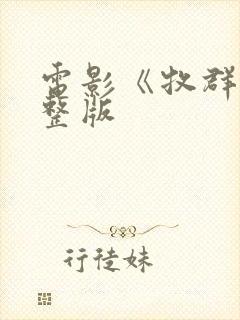 电影《牧群
整版
行徒妹